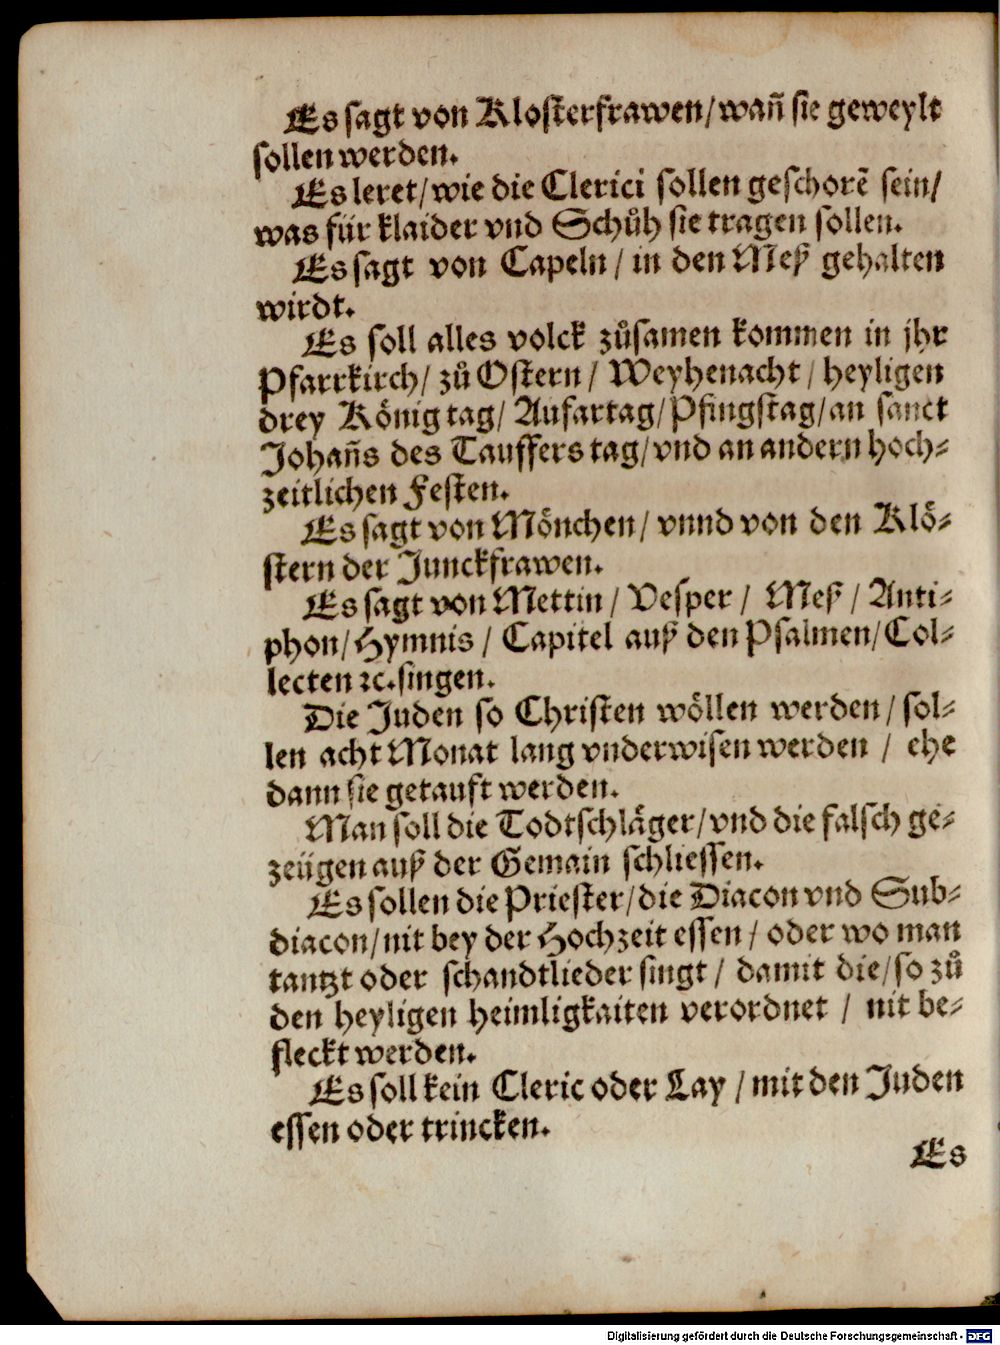 Es sagt von Klosterfrawen/wañ sie geweylt
sollen werden.
Es leret/wie die Clerici sollen geschorẽ sein/
was für klaider vnd Schůh sie tragen sollen.
Es sagt von Capeln / in den Meß gehalten
wirdt.
Es soll alles volck zůsamen kommen in jhr
Pfarrkirch/ zů Ostern / Weyhenacht / heyligen
drey König tag/ Aufartag/Pfingstag/an sanct
Johañs des Tauffers tag/vnd an andern hoch-
zeitlichen Festen.
Es sagt von Mönchen/ vnnd von den Klö-
stern der Junckfrawen.
Es sagt von Mettin / Vesper / Meß / Anti-
phon/Hymnis / Capitel auß den Psalmen/Col-
lecten ꝛc.singen.
Die Juden so Christen wöllen werden / sol-
len acht Monat lang vnderwisen werden / ehe
dann sie getauft werden.
Man soll die Todtschläger/vnd die falsch ge-
zeügen auß der Gemain schliessen.
Es sollen die Priester/die Diacon vnd Sub-
diacon/nit bey der Hochzeit essen / oder wo man
tantzt oder schandtlieder singt / damit die/so zů
den heyligen heimligkaiten verordnet / nit be-
fleckt werden.
Es soll kein Cleric oder Lay / mit den Juden
essen oder trincken.
Es
Digitalisierung gefördert durch die Deutsche Forschungsgemeinschaft - DFG